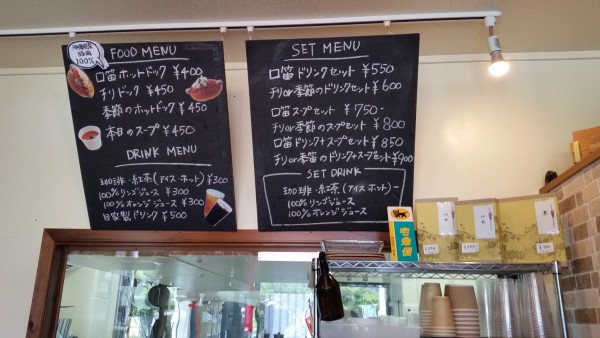 FOOD MENU
100%
口笛ホットドック ¥400
チリドック ¥450
季節のホットドック ¥450
本日のスープ ¥450
DRINK MENU
珈琲・紅茶(アイス・ホット) ¥300
100%リンゴジュース ¥300
100%オレンジジュース ¥300
自家製ドリンク ¥500
SET MENU
口笛ドリンクセット ¥550
チリor季節のドリンクセット ¥600
口笛スープセット ¥750-
チリor季節のスープセット ¥800
口笛ドリンク+スープセット ¥850
チリor季笛のドリンク+スープセット ¥900
SET DRINK
珈琲・紅茶(アイス ホット)-
100%リンゴジュース
100%オレンジジュース
宅急便